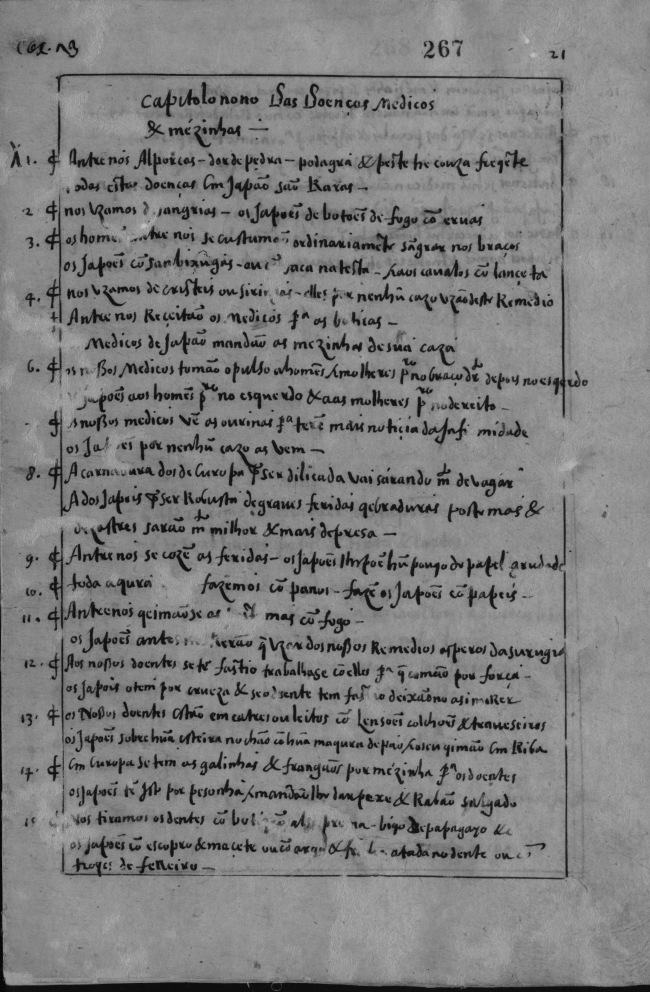 267
21
Capitolo nono Das Doenças Medicos
& mézinhas —
1. Antre nós Alporcas – dor de pedra – podagra & peste he couza freqẽte
todas estas doenças em Japaõ saõ Raras –
2 nos vzamos de sangrias – os Japoẽs de botoẽs de fogo cõ ervas
3. os homẽs antre nós se custumaõ ordinariamẽte sãgrar nos braços
os Japoẽs cõ sanbixugas – ou cõ faca na testa – & aos cavalos cõ lançeta
4. nos vzamos de cristeis ou siringas – elles por nenhũ cazo vzaõ deste Remedio
Antre nos Reçeitaõ os Medicos pª as boticas –
Medicos de Japaõ mandaõ as mezinhas de sua caza
6. os nossos Medicos tomaõ o pulso a homẽs & molheres pro no braço drto depois no esqerdo
Japoẽs aos homẽs pro no esquerdo & aas molheres pro no dereito –
os nossos medicos vẽ as ourinas pª terẽ mais notiçia da infirmidade
os Japoẽs por nenhũ cazo as vem –
8. A carnadura dos de Europa por ser dilicada vai sarando mto de vagar
A dos Japois por ser Robusta de graves feridas qebraduras postemas &
dezastres saraõ mto milhor & mais depresa –
9. Antre nos se cozẽ as feridas – os Japoẽs lhe poẽ hũ pouqo de papel grudado
10. toda a qura fazemos cõ panos – fazẽ os Japoẽs cõ papeis –
11. Antre nos qeimaõse as mas cõ fogo –
os Japoẽs antes morreraõ q̃ vzar dos nossos Remedios asperos da surugia
12. Aos nossos doentes se tẽ fastio trabalhase cõ elles pª q̃ comaõ por força –
os Japois o tem por crueza & se o doente tem fastio deixaõno asi morrer
13. os Nossos doentes estaõ em catres ou leitos cõ lensoẽs colchoẽs & traveseiros
os Japoẽs sobre hũa esteira no chaõ cõ hũa maqura de pao & o seu qimaõ em Riba
14. Em Europa se tem as galinhas & frangaõs por mézinha pª os doentes
os Japoẽs tẽ isto por pesonha & mandaõ lhe dar peixe & Rabaõ salgado
Nos tiramos os dentes cõ boticaõ bigo de papagayo &c
os Japoẽs cõ escopro & maçete ou cõ arqo & frecha atada no dente ou cõ
troqes de ferreiro –